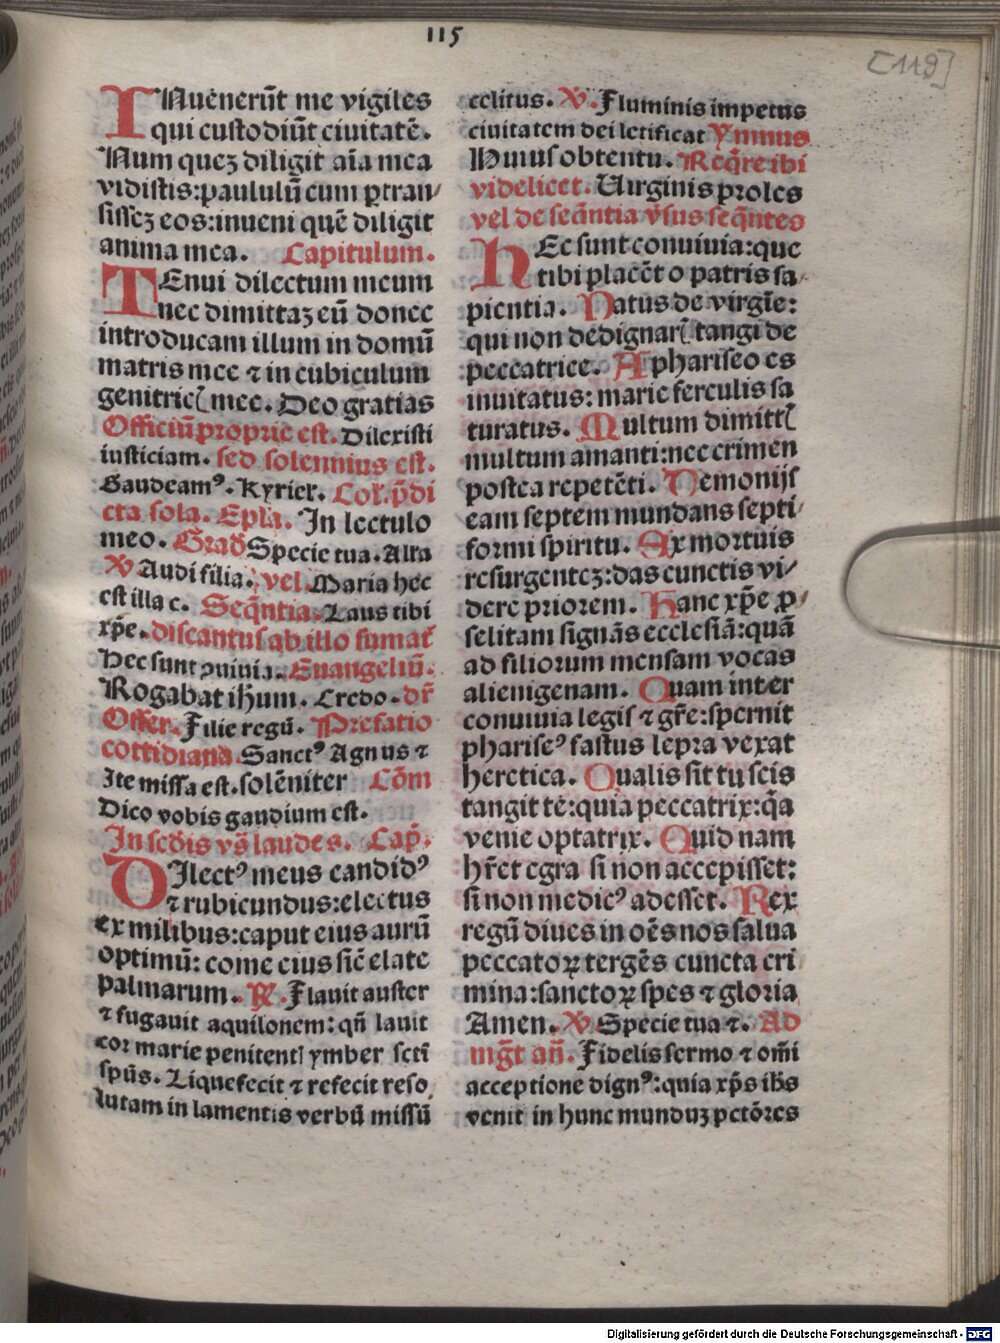 115
[119]
INuenerūt me vigiles
qui custodiūt ciuitatē.
Num quez diligit aīa mea
vidistis: paululū cum ꝑtran⸗
sissez eos: inueni quē diligit
anima mea. Capitulum.
TEnui dilectum meum
nec dimittaz eū donec
introducam illum in domū
matris mee ⁊ in cubiculum
genitricꝭ mee. Deo gratias
Officiū proprie est. Dilexisti
iusticiam. sed solennius est.
Gaudeamꝰ. Kyriel. Col. p̄di
cta sola. Epła. In lectulo
meo. Grad̄ Specie tua. Alla
℣ Audi filia. vel. Maria hec
est illa c. Seq̄ntia. Laus tibi
xp̄e. discantus ab illo sumat᷑
Hec sunt ꝯuiuia. Euangeliū.
Rogabat ihum. Credo. dr̄
Offer. Filie regū. Prefatio
cottidiana. Sanctꝰ Agnus ⁊
Ite missa est. solēniter Cōm
Dico vobis gaudium est.
In scd̄is vs̄ laudes. Cap̄.
DIlectꝰ meus candidꝰ
⁊ rubicundus: electus
ex milibus: caput eius aurū
optimū: come eius sic̄ elate
palmarum. ℟. Flauit auster
⁊ fugauit aquilonem: qn̄ lauit
cor marie penitentꝭ ymber sct̄i
spūs. Liquefecit ⁊ refecit reso
lutam in lamentis verbū missū
celitus. ℣. Fluminis impetus
ciuitatem dei letificat Ymnus
Huius obtentu. Req̄re ibi
videlicet. Uirginis proles
vel de seq̄ntia v̄sus seq̄ntes
HEc sunt conuiuia: que
tibi placēt o patris sa⸗
pientia. Natus de virgīe:
qui non dedignarꝭ tangi de
peccatrice. A phariseo es
inuitatus: marie ferculis sa
turatus. Multum dimittꝭ
multum amanti: nec crimen
postea repetēti. Demonijs
eam septem mundans septi⸗
formi spiritu. Ex mortuis
resurgentez: das cunctis vi⸗
dere priorem. Hanc xp̄e ꝓ⸗
selitam signās ecclesiā: quā
ad filiorum mensam vocas
alienigenam. Quam inter
conuiuia legis ⁊ gr̄e: spernit
phariseꝰ fastus lepra vexat
heretica. Qualis sit tu scis
tangit te: quia peccatrix: q̄a
venie optatrix. Quid nam
hr̄et egra si non accepisset:
si non medicꝰ adesset. Rex
regū diues in oēs nos salua
peccatoꝝ tergēs cuncta cri
mina: sanctoꝝ spes ⁊ gloria
Amen. ℣ Specie tua ⁊. Ad
mgt̄ an̄. Fidelis sermo ⁊ om̄i
acceptione dignꝰ: quia xp̄s ih̄s
venit in hunc munduz pctōres
Digitalisierung gefördert durch die Deutsche Forschungsgemeinschaft - DFG